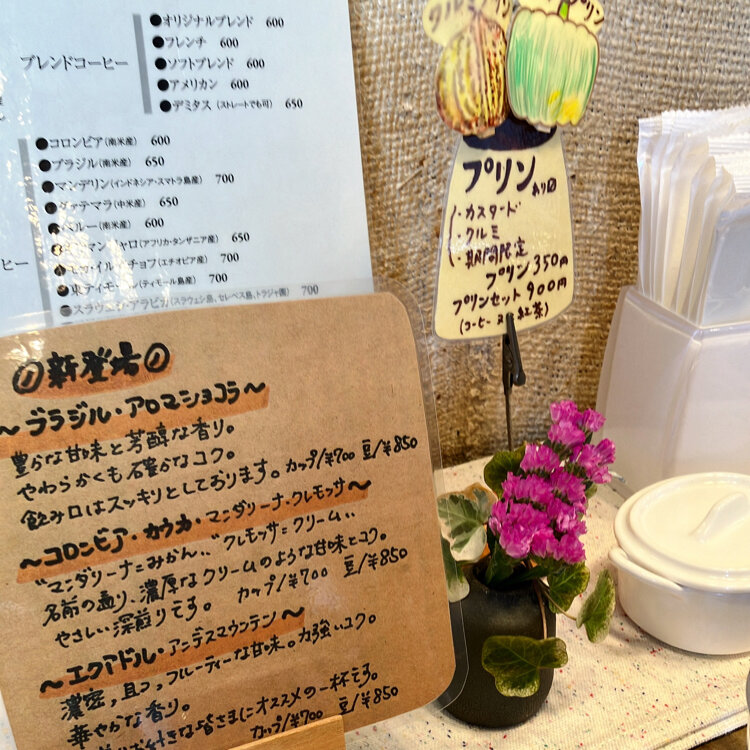 ブレンドコーヒー
●オリジナルブレンド 600
●フレンチ 600
●ソフトブレンド 600
●アメリカン 600
●デミタス (ストレートでも可) 650
●コロンビア (南米産) 600
●ブラジル (南米産) 650
●マンデリン (インドネシア・スマトラ島産) 700
●グァテマラ (中米産) 650
ペルー (南米産) 600
(アフリカ・タンザニア産) 650
(エチオピア産) 700
(ティモール島産) 700
スラウェシ・アラビカ (スラウェシ島、セレベス島、トラジャ園) 700
ヒー
クルミ
プリン
プリン
あり〼
・カスタード
・クルミ
・期間限定
プリン 350円
プリンセット 900円
(コーヒー 又は 紅茶)
新登場
〜ブラジル・アロマショコラ〜
豊かな甘味と芳醇な香り。
やわらかくも確かなコク。
飲み口はスッキリとしております。カップ/¥700 豆/¥850
〜コロンビア・カウカ・マンダリーナ・クレモッサ〜
"マンダリーナ=みかん" "クレモッサ=クリーム"
名前の通り、濃厚なクリームのような甘味とコク。
やさしい深煎りです。 カップ/¥700 豆/¥850
〜エクアドル・アンデスマウンテン〜
濃密、且つ、フルーティーな甘味。力強いコク。
華やかな香り。
好きな皆さまにオススメの一杯です。
カップ/¥700 豆/¥850